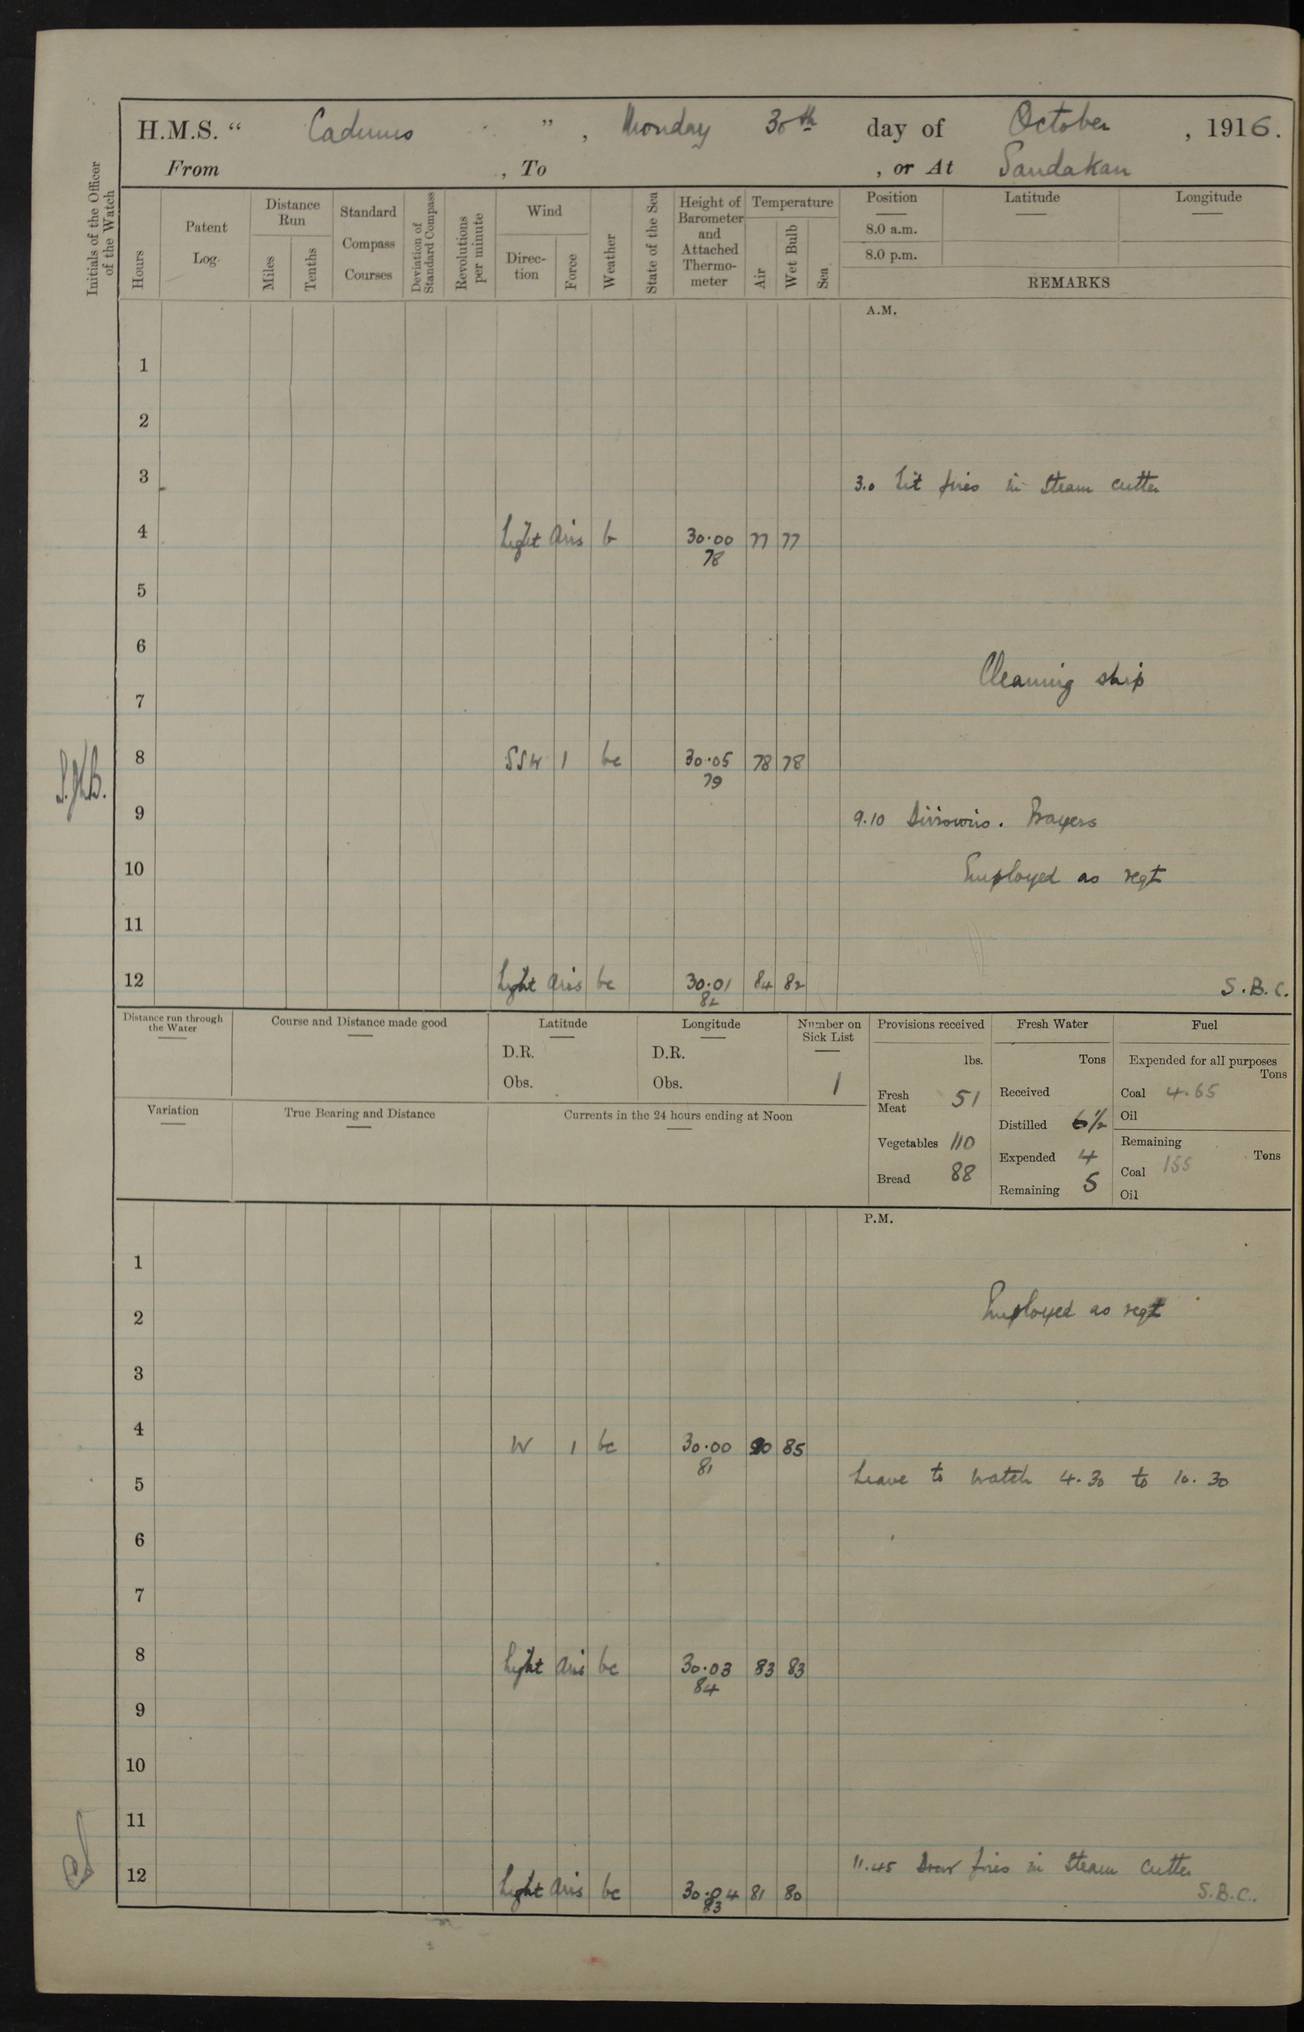 H.M.S. “ Cadmus ” , Monday 30th day of October , 1916.
From , To , or At Sandakan
Initials of the Officer of the Watch
Hours
Patent Log
Distance Run
Miles
Tenths
Standard Compass Courses
Deviation of Standard Compass
Revolutions per minute
Wind
Direc-tion
Force
Weather
State of the Sea
Height of Barometer and Attached Thermo-meter
Temperature
Air
Wet Bulb
Sea
Position
Latitude
Longitude
8.0 a.m.
8.0 p.m.
REMARKS
A.M.
1
2
3 3.0 Lit fires in Steam cutter
4 Light airs b 30.00 77 77
78
5
6
Cleaning ship
7
8 SSW 1 bc 30.05 78 78
79
9 9.10 Divisions. Prayers
10 Employed as reqt
11
12 Light airs bc 30.01 84 82 S.B.C.
82
Distance run through the Water
Course and Distance made good
Latitude
D.R.
Obs.
Longitude
D.R.
Obs.
Number on Sick List
1
Variation
True Bearing and Distance
Currents in the 24 hours ending at Noon
Provisions received
lbs.
Fresh Meat 51
Vegetables 110
Bread 88
Fresh Water
Tons
Received
Distilled 6½
Expended 4
Remaining 5
Fuel
Expended for all purposes
Tons
Coal 4.65
Oil
Remaining
Tons
Coal 155
Oil
P.M.
1
2 Employed as reqt
3
4 W 1 bc 30.00 90 85
81
5 Leave to watch 4.30 to 10.30
6
7
8 Light airs bc 30.03 83 83
84
9
10
11
11.45 Drew fires in Steam Cutter
12 Light airs bc 30.04 81 80 S.B.C.
83